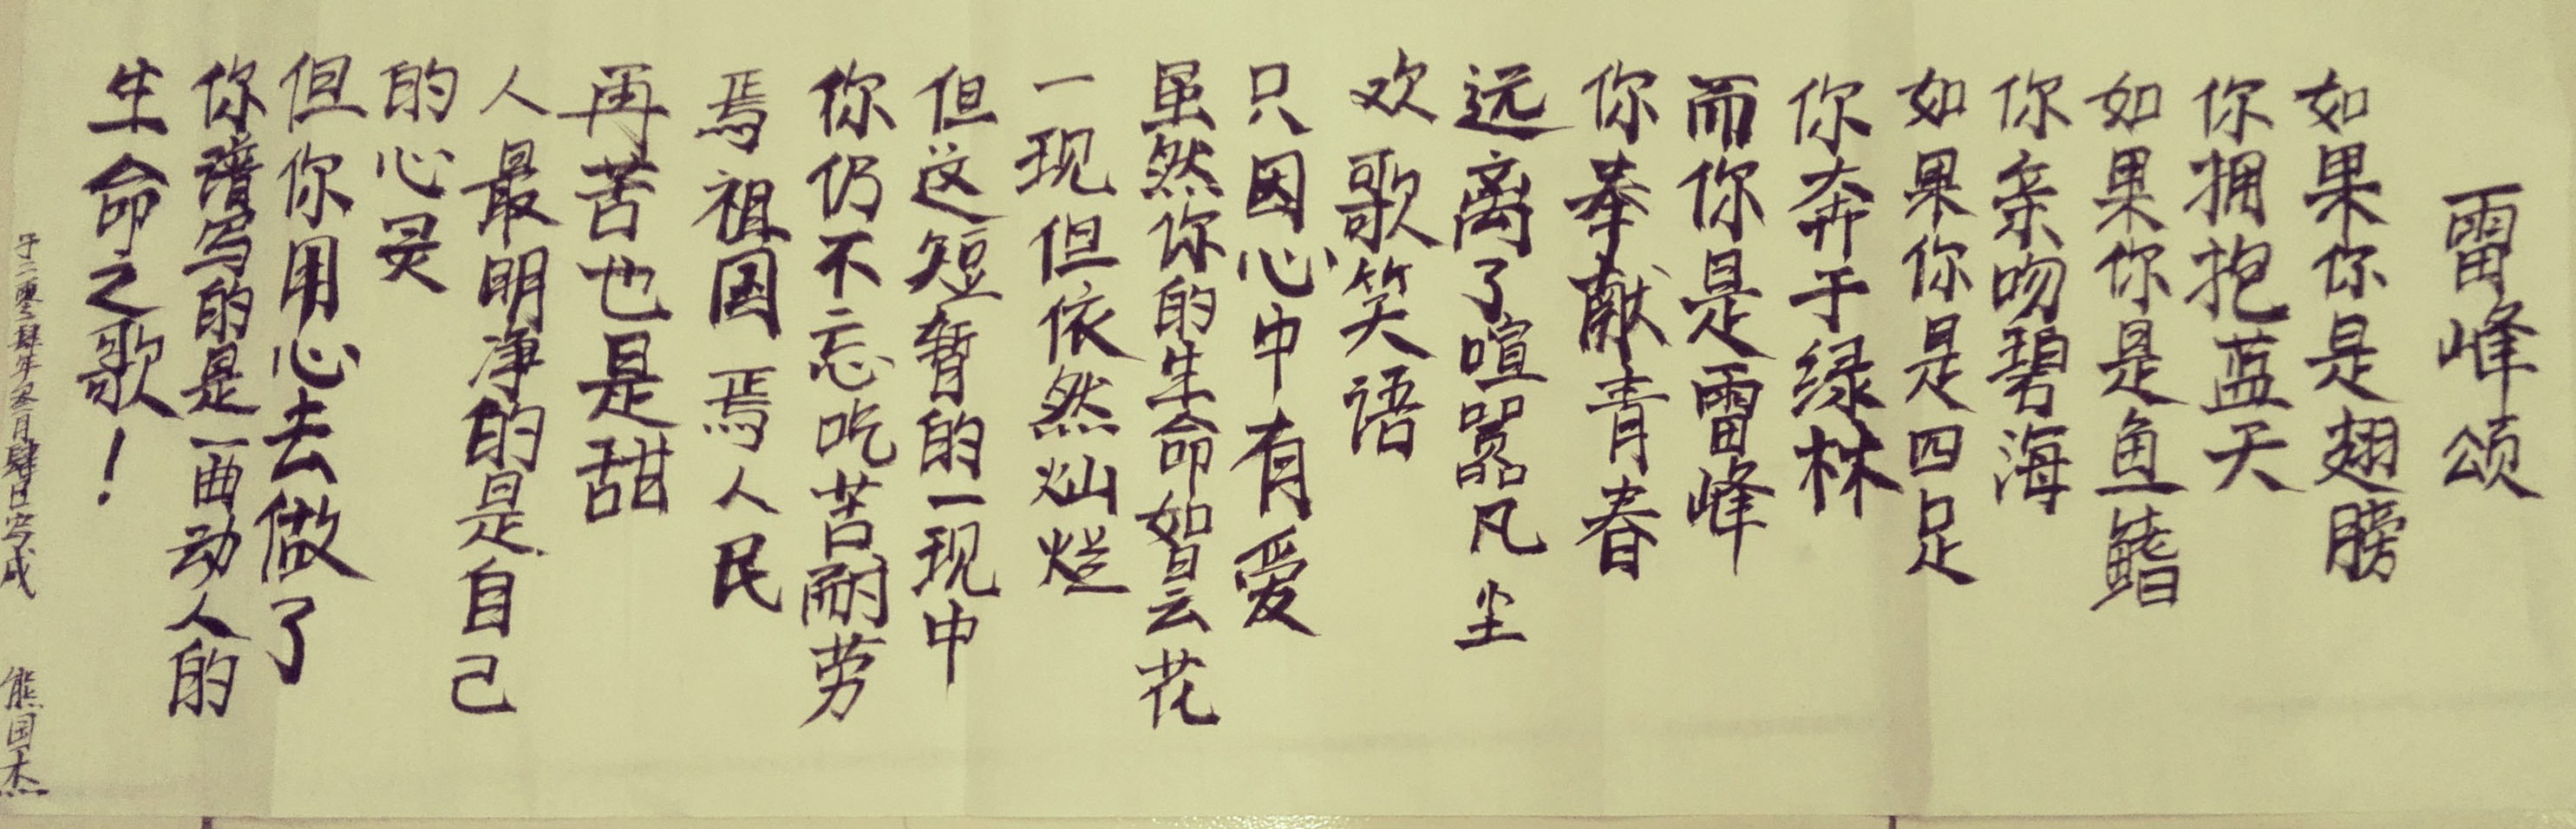 雷峰颂
如果你是翅膀
你拥抱蓝天
如果你是鱼鳍
你亲吻碧海
如果你是四足
你奔于绿林
而你是雷峰
你奉献青春
远离了喧嚣凡尘
欢歌笑语
只因心中有爱
虽然你的生命如昙花
一现但依然灿烂
但这短暂的一现中
你仍不忘吃苦耐劳
焉祖国焉人民
再苦也是甜
人最明净的是自己
的心灵
但你用心去做了
你谱写的是一曲动人的
生命之歌！
于二零壹肆年叁月肆日写成 熊国杰